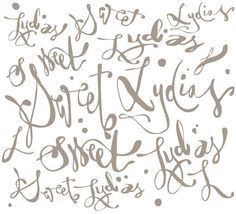 Lydias
Sweet
Lydias
Sweet
Lydias
Sweet Lydias
Sweet
Lydias
Sweet Lydias
&L